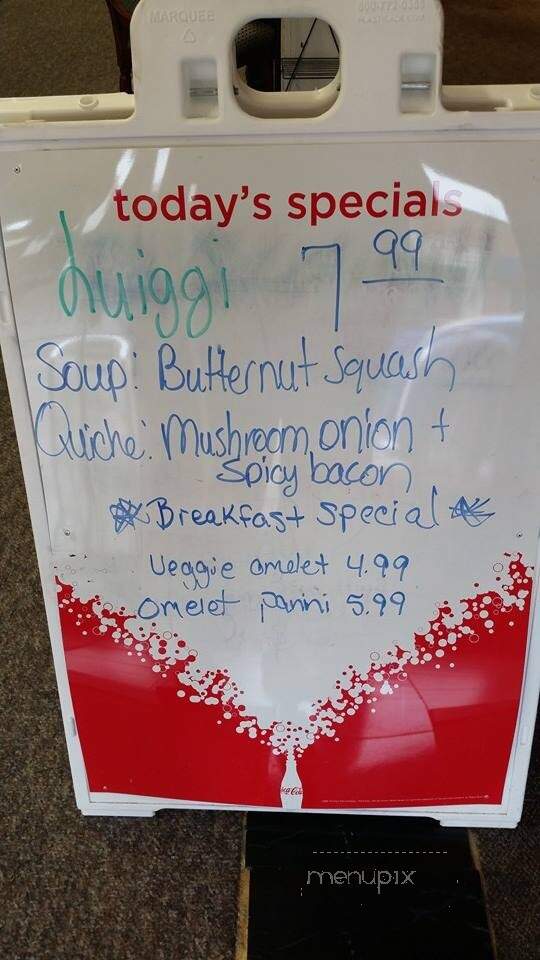 MARQUEE
today's specials
Luiggi 7 99
Soup: Butternut Squash
Quiche: Mushroom onion +
Spicy bacon
Breakfast Special
Veggie omelet 4.99
omelet panini 5.99
menupix